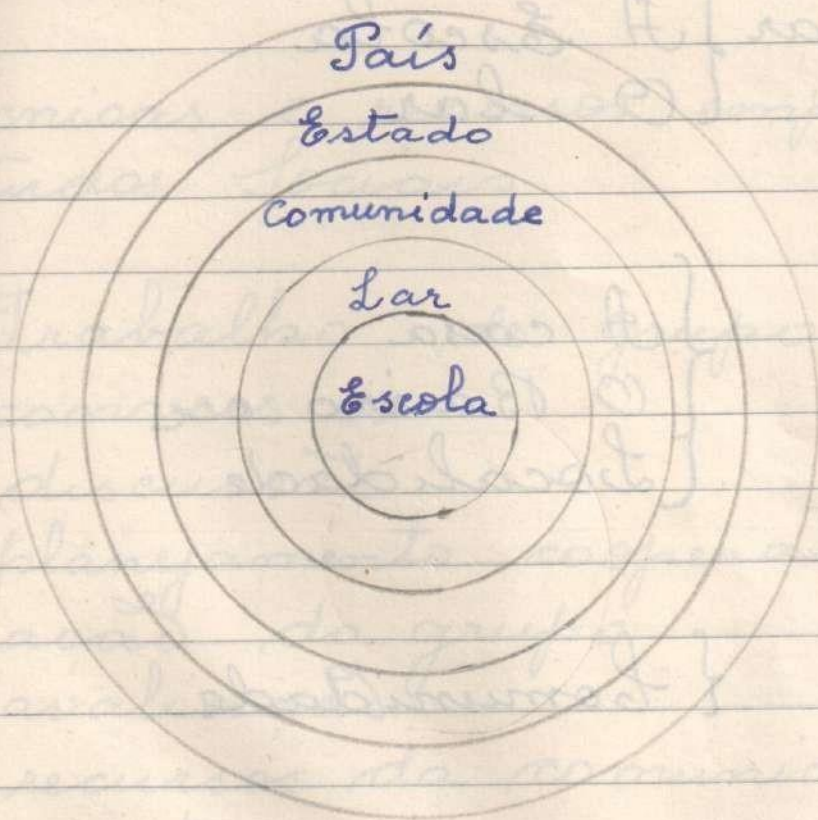 País
Estado
Comunidade
Lar
Escola